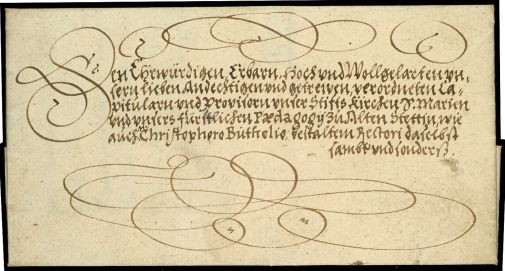 Den Ehrwürdigen, Erbarn, Hoch und Wollgelarten un-
sern lieben Andechtigen und getrewen, verordneten Ca-
pitularn und Provisorn unser Stifts Kirchen S. Marien
und unsers fürstlichen Pædagogy zu Alten Stettin, wie
auch Christophoro Büthelio, bestaltem Rectori daselbst
sambt und sonderß.